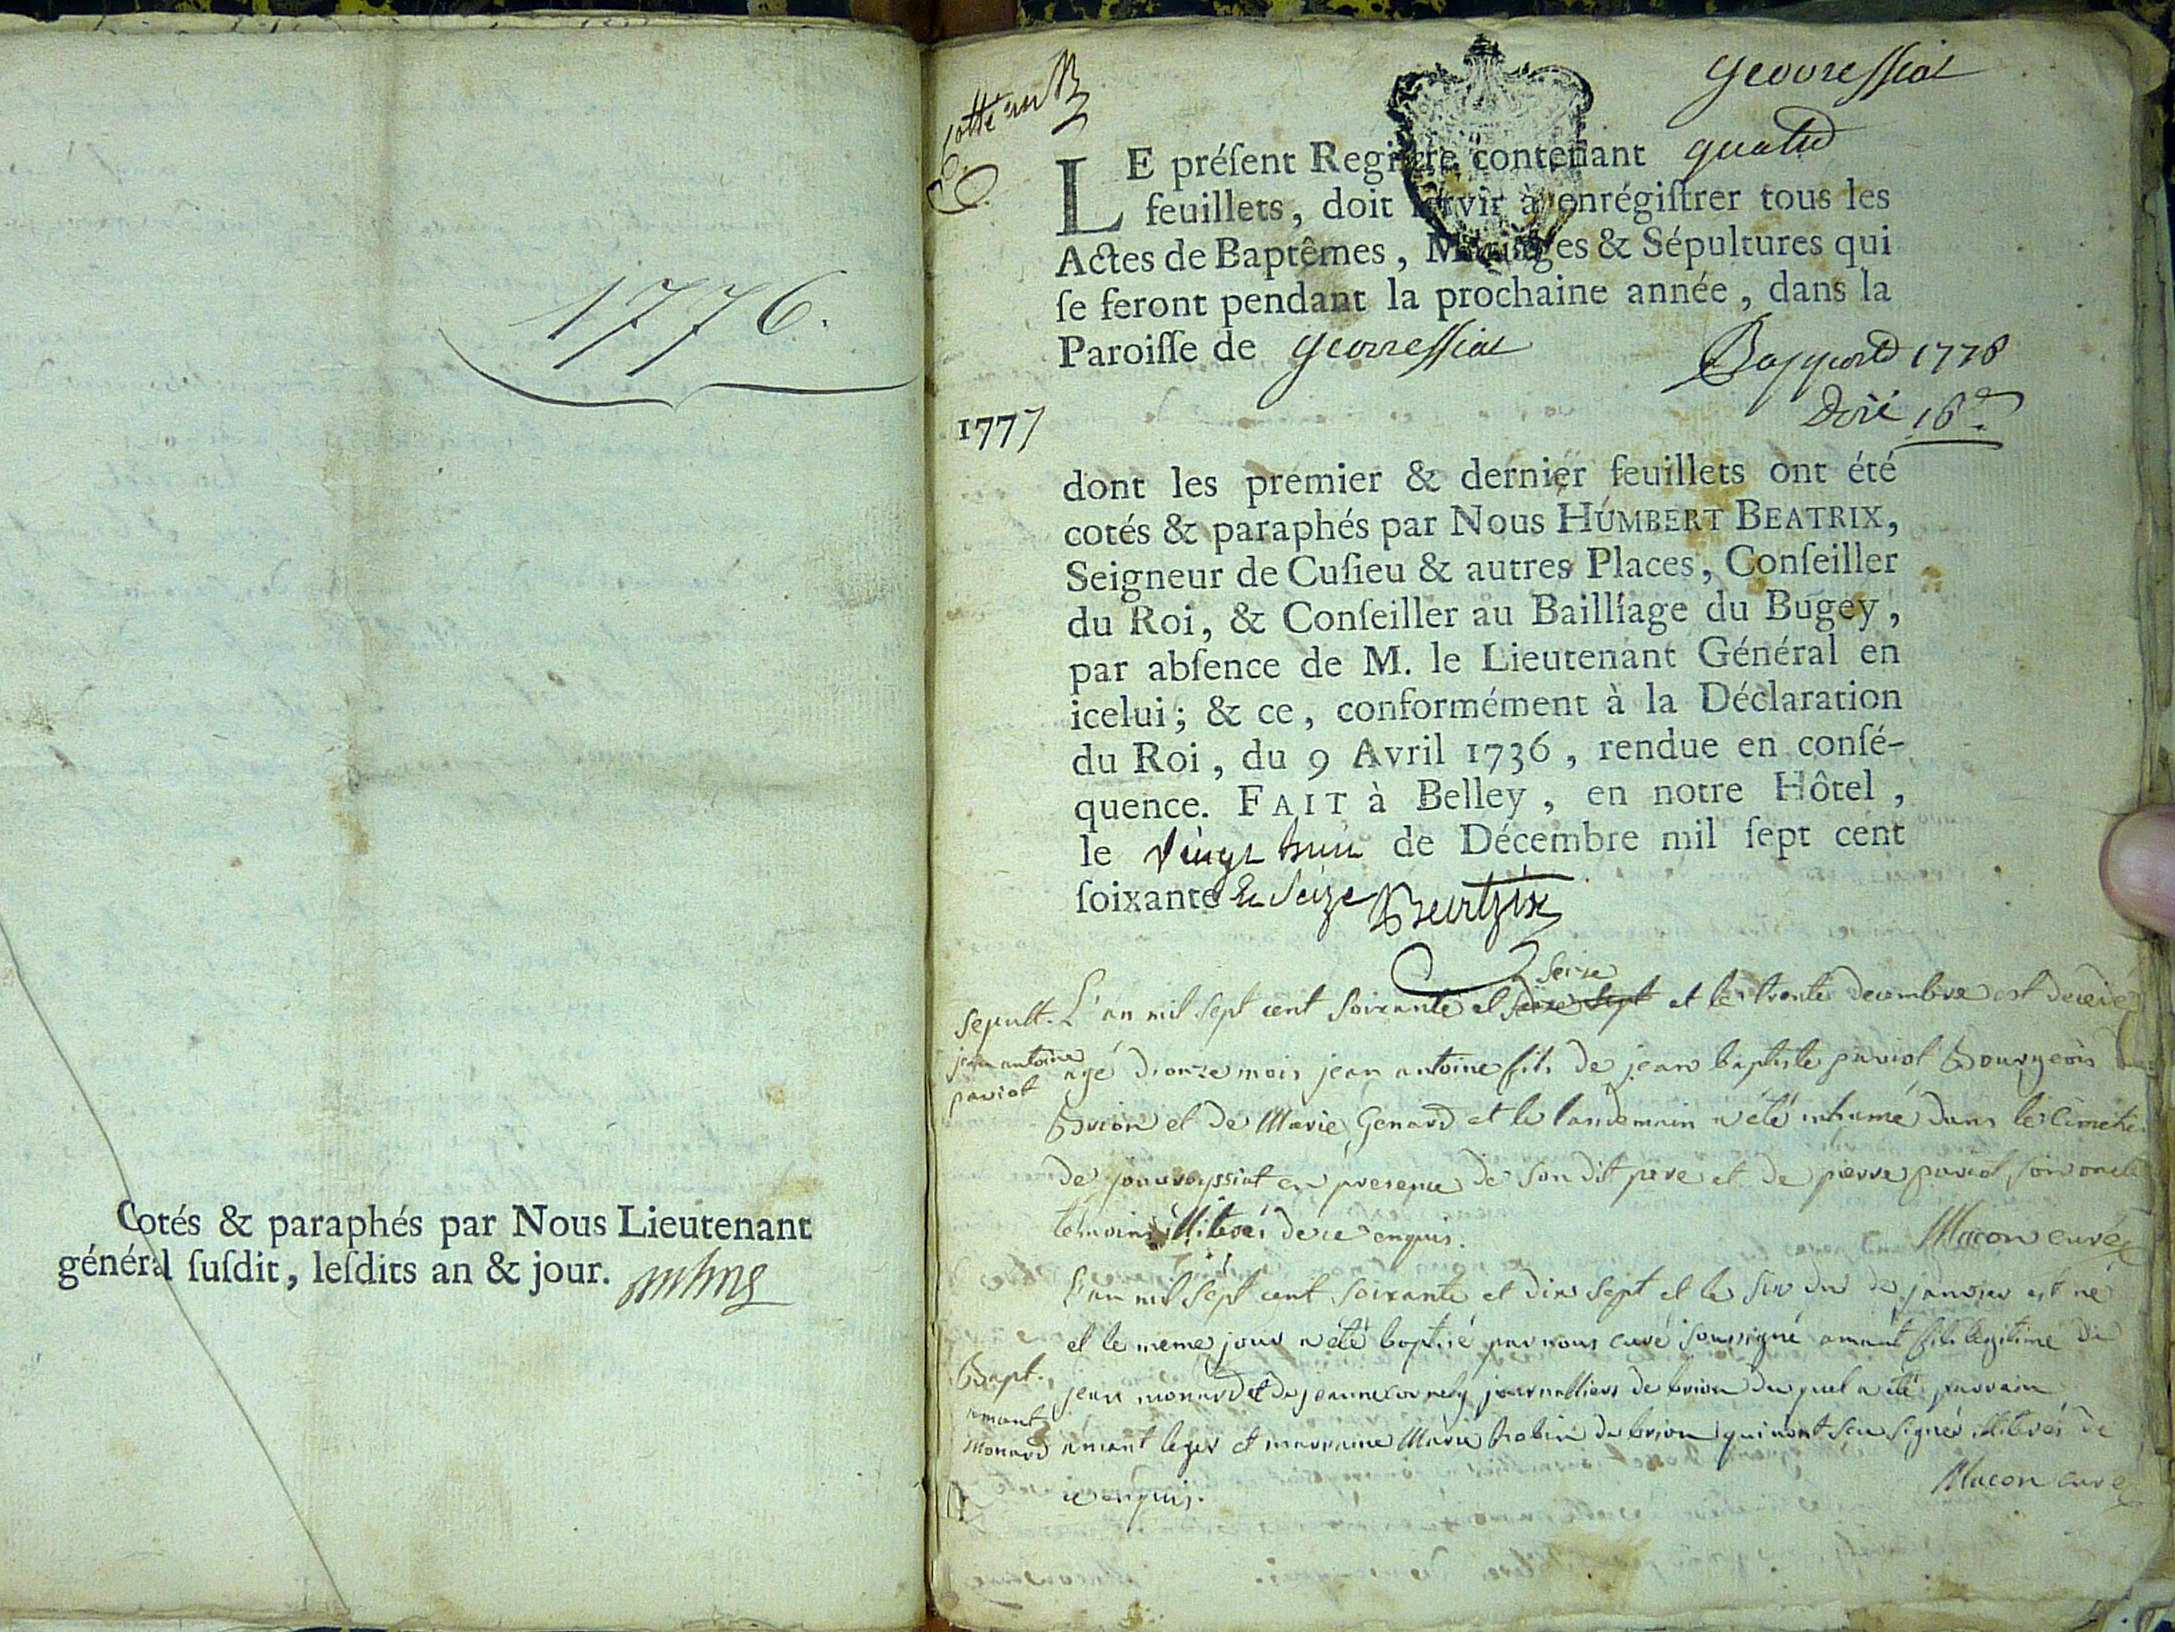 1776.
Cotés & paraphés par Nous Lieutenant
général ſuſdit, leſdits an & jour.
cotté
Geovressiat
LE préſent Regiſtre contenant quatre
feuillets, doit ſervir à enrégiſtrer tous les
Actes de Baptêmes, Mariages & Sépultures qui
ſe feront pendant la prochaine année, dans la
Paroiſſe de Geovressiat
Rapporté 1778
Doit 16
1777
dont les premier & dernier feuillets ont été
cotés & paraphés par Nous HUMBERT BEATRIX,
Seigneur de Cuſieu & autres Places, Conſeiller
du Roi, & Conſeiller au Bailliage du Bugey,
par abſence de M. le Lieutenant Général en
icelui; & ce, conformément à la Déclaration
du Roi, du 9 Avril 1736, rendue en conſé-
quence. FAIT à Belley, en notre Hôtel,
le vingt huit de Décembre mil ſept cent
ſoixante et Seize Beatrix
seize
sepult. L'an mil sept cent soixante et et le trente decembre est decedé
jean antoine agé d'onze mois jean antoine fils de jean baptiste pariot Bourgeois
pariot
Brion et de Marie Genard et le landemain a été inhumé dans le Cimetie
de jouvreyssiat en presence de son dit pere et de pierre pariot son oncle
temoins illiterés de ce enquis.
Macon curé
L'an mil sept cent soixante et dix sept et le six du de janvier est né
et le meme jour a été baptisé par nous curé soussigné amant fils legitime de
Bapt. jean monard et de jeanne cornely journalliers de brion du quel a été parrain
amant
monard amant leger et marraine Marie Robin de brion qui n'ont seu signer illiterés de
ce enquis.
Macon curé